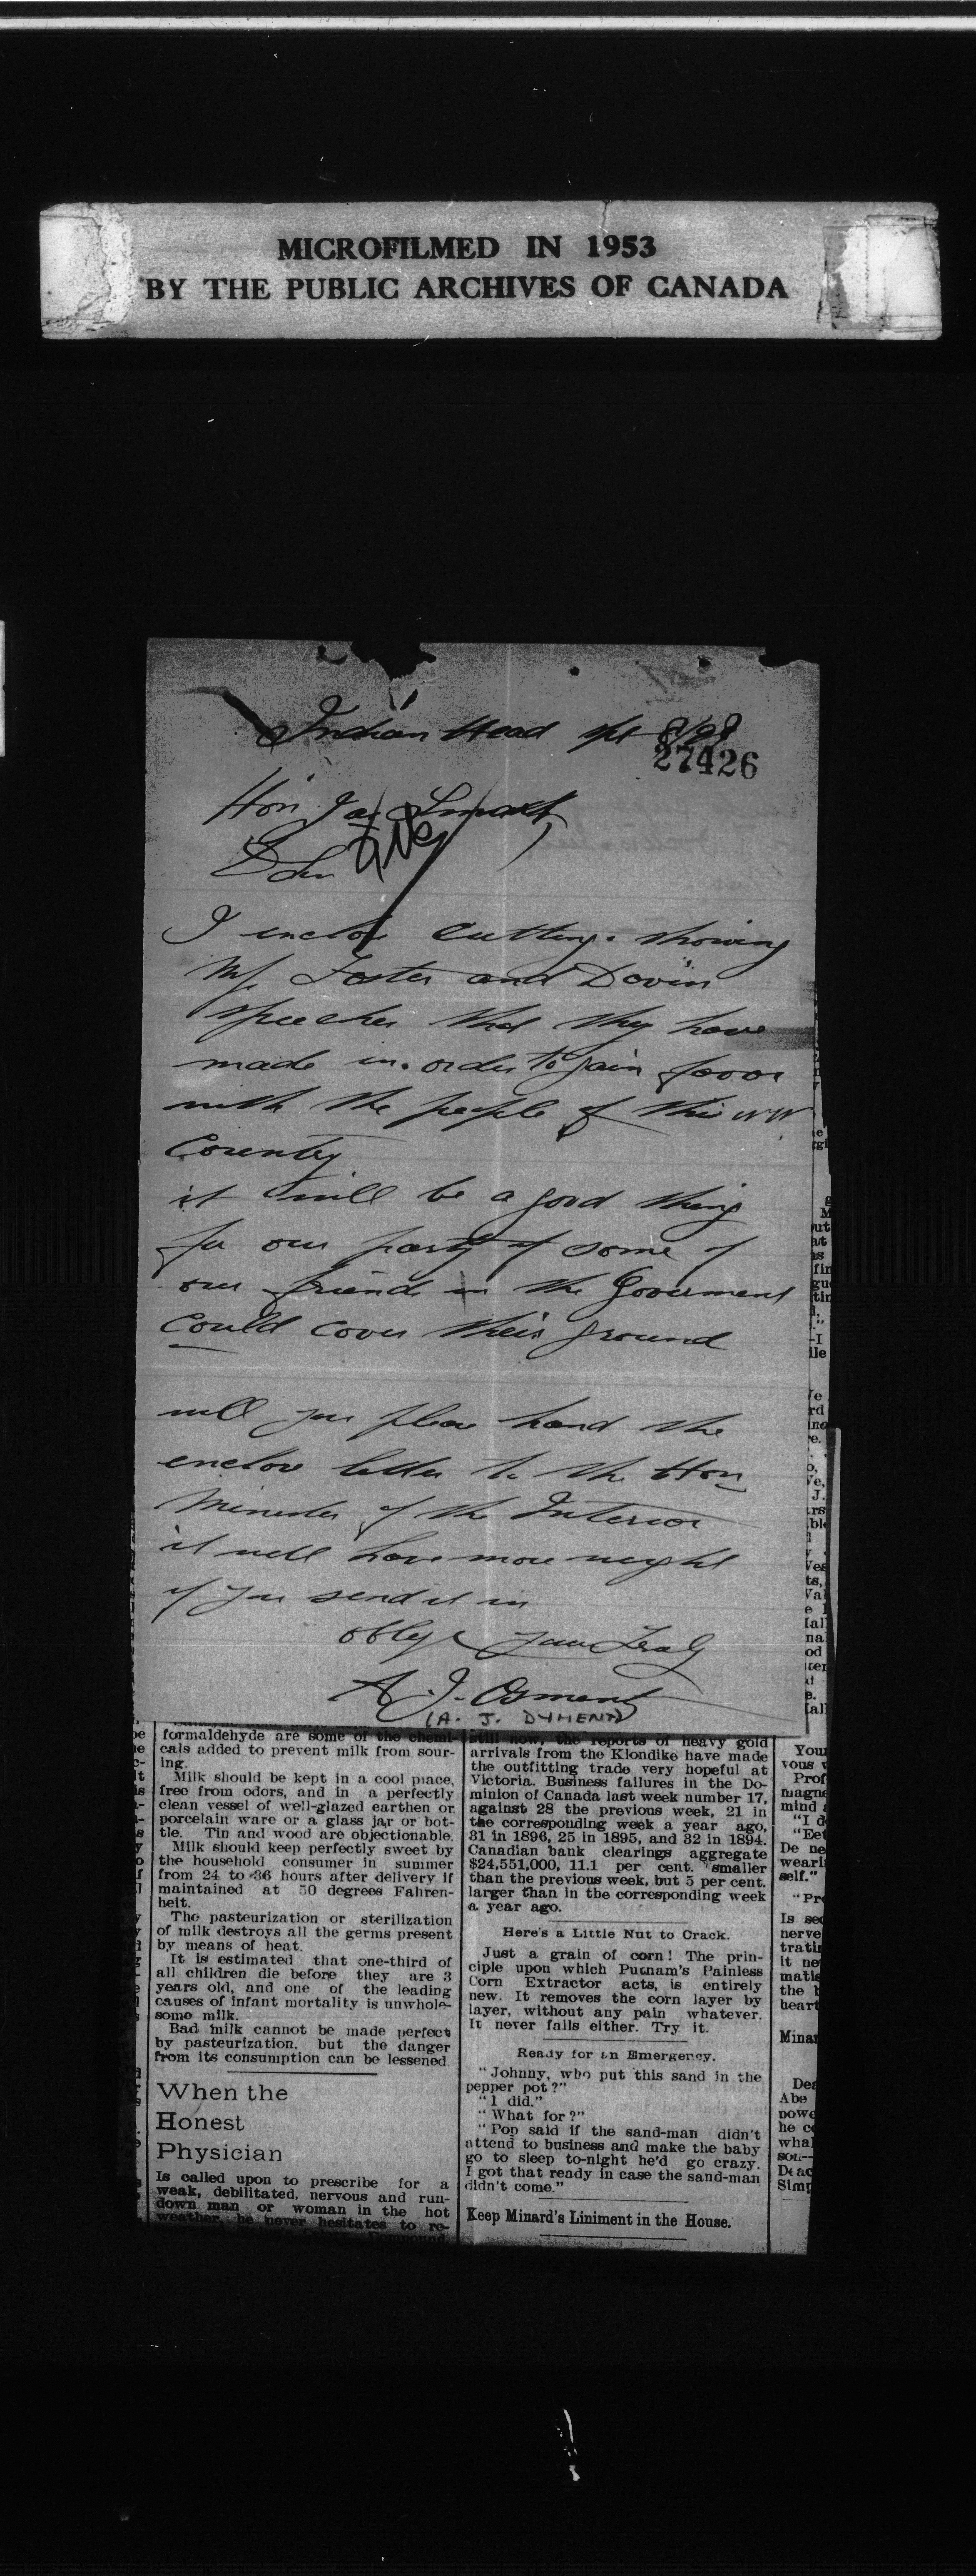 MICROFILMED IN 1953
BY THE PUBLIC ARCHIVES OF CANADA
Indian Head Spt 8/98
27426
Hon Jas Smart
File
D Sir
I enclose Cuttings showing
Mr Foster and Davin
speeches that they have
made in order to gain favor
with the people of this NW
Country
it will be a good thing
for our party if some of
our friend in the Goverment
Could cover their ground
will you please hand the
enclose letter to the Hon
Minester of the Interior
it will have more weight
if you send it in
oblige Yours Truly
A. J. Osment
(A. J. DYMENT)
formaldehyde are some of the chemi-
cals added to prevent milk from sour-
ing.
Milk should be kept in a cool place,
free from odors, and in a perfectly
clean vessel of well-glazed earthen or
porcelain ware or a glass jar or bot-
tle. Tin and wood are objectionable.
Milk should keep perfectly sweet by
the household consumer in summer
from 24 to 36 hours after delivery if
maintained at 50 degrees Fahren-
heit.
The pasteurization or sterilization
of milk destroys all the germs present
by means of heat.
It is estimated that one-third of
all children die before they are 3
years old, and one of the leading
causes of infant mortality is unwhole-
some milk.
Bad milk cannot be made perfect
by pasteurization, but the danger
from its consumption can be lessened
When the
Honest
Physician
Is called upon to prescribe for a
weak, debilitated, nervous and run-
down man or woman in the hot
weather, he never hesitates to re-
still now, the reports of heavy gold
arrivals from the Klondike have made
the outfitting trade very hopeful at
Victoria. Business failures in the Do-
minion of Canada last week number 17,
against 28 the previous week, 21 in
the corresponding week a year ago,
31 in 1896, 25 in 1895, and 32 in 1894.
Canadian bank clearings aggregate
$24,551,000, 11.1 per cent. smaller
than the previous week, but 5 per cent.
larger than in the corresponding week
a year ago.
Here's a Little Nut to Crack.
Just a grain of corn! The prin-
ciple upon which Putnam's Painless
Corn Extractor acts, is entirely
new. It removes the corn layer by
layer, without any pain whatever.
It never fails either. Try it.
Ready for an Emergency.
"Johnny, who put this sand in the
pepper pot?"
"I did."
"What for?"
"Pop said if the sand-man didn't
attend to business and make the baby
go to sleep to-night he'd go crazy.
I got that ready in case the sand-man
didn't come."
Keep Minard's Liniment in the House.